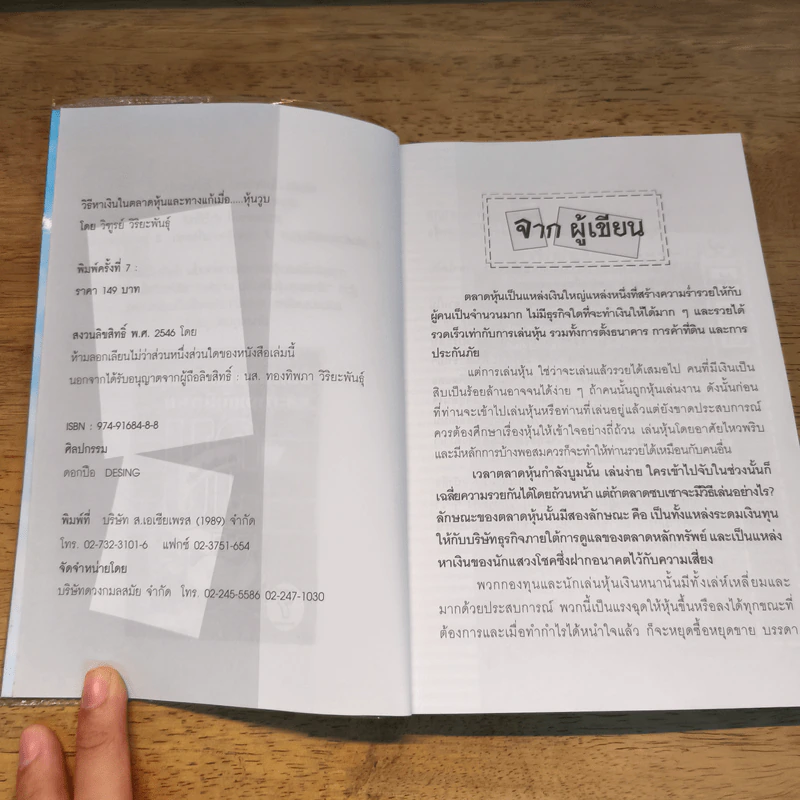 วิธีหาเงินในตลาดหุ้นและทางแก้เมื่อ.....หุ้นวูบ
โดย วิฑูรย์ วิริยะพันธุ์
พิมพ์ครั้งที่ 7 :
ราคา 149 บาท
สงวนลิขสิทธิ์ พ.ศ. 2546 โดย
ห้ามลอกเลียนไม่ว่าส่วนหนึ่งส่วนใดของหนังสือเล่มนี้
นอกจากได้รับอนุญาตจากผู้ถือลิขสิทธิ์ : นส. ทองทิพภา วิริยะพันธุ์
ISBN : 974-91684-8-8
ศิลปกรรม
ดอกปีอ DESING
พิมพ์ที่ บริษัท ส.เอเซียเพรส (1989) จำกัด
โทร. 02-732-3101-6 แฟกซ์ 02-3751-654
จัดจำหน่ายโดย
บริษัทดวงกมลสมัย จำกัด โทร. 02-245-5586 02-247-1030
จาก ผู้เขียน
ตลาดหุ้นเป็นแหล่งเงินใหญ่แหล่งหนึ่งที่สร้างความร่ำรวยให้กับ
ผู้คนเป็นจำนวนมาก ไม่มีธุรกิจใดที่จะทำเงินให้ได้มาก ๆ และรวยได้
รวดเร็วเท่ากับการเล่นหุ้น รวมทั้งการตั้งธนาคาร การค้าที่ดิน และการ
ประกันภัย
แต่การเล่นหุ้น ใช่ว่าจะเล่นแล้วรวยได้เสมอไป คนที่มีเงินเป็น
สิบเป็นร้อยล้านอาจจนได้ง่าย ๆ ถ้าคนนั้นถูกหุ้นเล่นงาน ดังนั้นก่อน
ที่ท่านจะเข้าไปเล่นหุ้นหรือท่านที่เล่นอยู่แล้วแต่ยังขาดประสบการณ์
ควรต้องศึกษาเรื่องหุ้นให้เข้าใจอย่างถี่ถ้วน เล่นหุ้นโดยอาศัยไหวพริบ
และมีหลักการบ้างพอสมควรก็จะทำให้ท่านรวยได้เหมือนกับคนอื่น
เวลาตลาดหุ้นกำลังบูมนั้น เล่นง่าย ใครเข้าไปจับในช่วงนั้นก็
เฉลี่ยความรวยกันได้โดยถ้วนหน้า แต่ถ้าตลาดซบเซาจะมีวิธีเล่นอย่างไร?
ลักษณะของตลาดหุ้นนั้นมีสองลักษณะ คือ เป็นทั้งแหล่งระดมเงินทุน
ให้กับบริษัทธุรกิจภายใต้การดูแลของตลาดหลักทรัพย์ และเป็นแหล่ง
หาเงินของนักแสวงโชคซึ่งฝากอนาคตไว้กับความเสี่ยง
พวกกองทุนและนักเล่นหุ้นเงินหนานั้นมีทั้งเล่ห์เหลี่ยมและ
มากด้วยประสบการณ์ พวกนี้เป็นแรงฉุดให้หุ้นขึ้นหรือลงได้ทุกขณะที่
ต้องการและเมื่อทำกำไรได้หนำใจแล้ว ก็จะหยุดซื้อหยุดขาย บรรดา